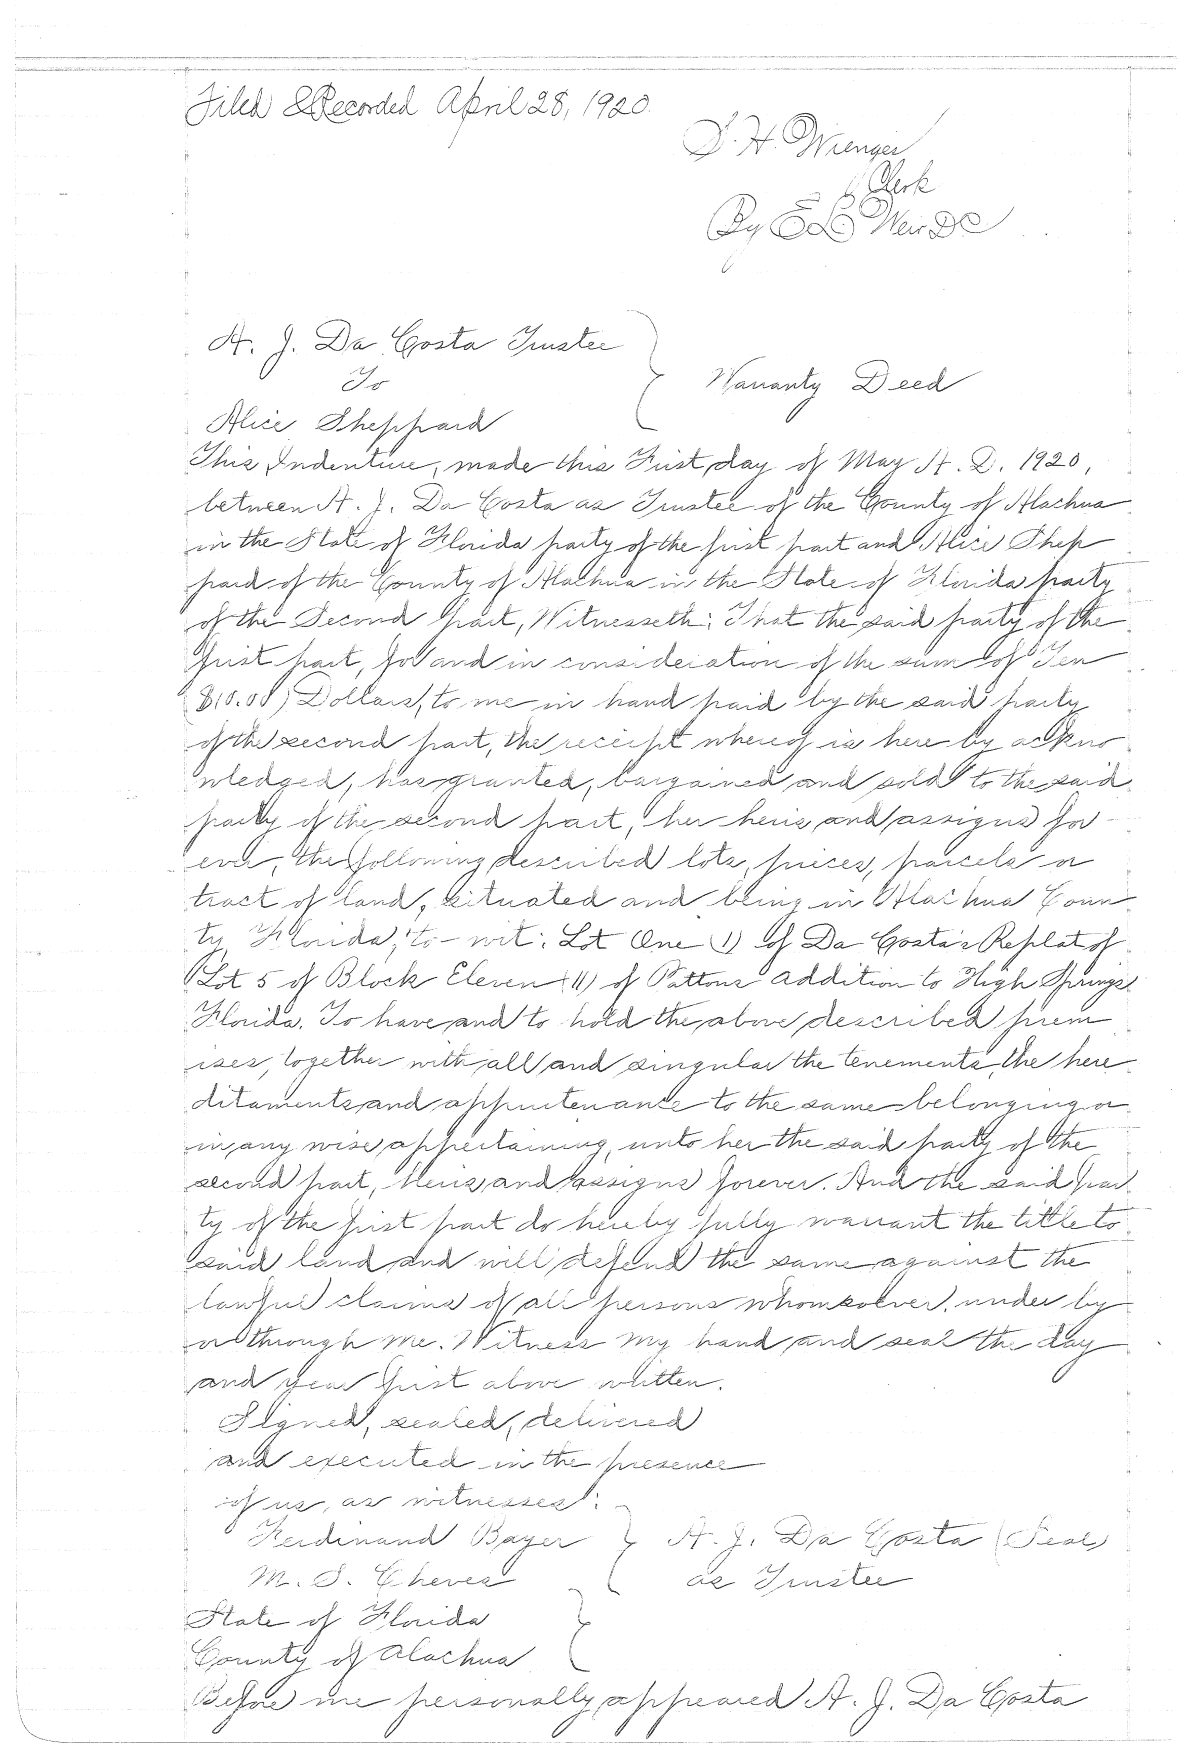 Filed & Recorded April 28, 1920.
S. H. Wienges
Clerk
By E L Weir DC
A. J. Da Costa Trustee
To
Warranty Deed
Alice Sheppard
This Indenture, made this First day of May A. D. 1920,
between A. J. Da Costa as Trustee of the County of Alachua
in the State of Florida party of the first part and Alice Shep
pard of the County of Alachua in the State of Florida party
of the Second part, Witnesseth; That the said party of the
first part, for and in consideration of the sum of Ten
$10.00) Dollars, to me in hand paid by the said party
of the second part, the receipt whereof is here by ackno
wledged, has granted, bargained and sold to the said
party of the second part, her heirs and assigns for
ever, the following described lots, pieces, parcels or
tract of land, situated and being in Alachua Coun
ty Florida, to-wit: Lot One (1) of Da Costa's Replat of
Lot 5 of Block Eleven (11) of Pattons Addition to High Springs
Florida. To have and to hold the above described prem
ises, together with all and singular the tenements, the here
ditaments and appurtenance to the same belonging or
in any wise appertaining, unto her the said party of the
second part, heirs and assigns forever. And the said par
ty of the first part do hereby fully warrant the title to
said land and will defend the same against the
lawful claims of all persons whomsoever, under by
or through me. Witness my hand and seal the day
and year first above written.
Signed, sealed, delivered
and executed in the presence
of us, as witnesses:
Ferdinand Bayer A. J. Da Costa (Seal)
M. S. Cheves as Trustee
State of Florida
County of Alachua
Before me personally appeared A. J. Da Costa